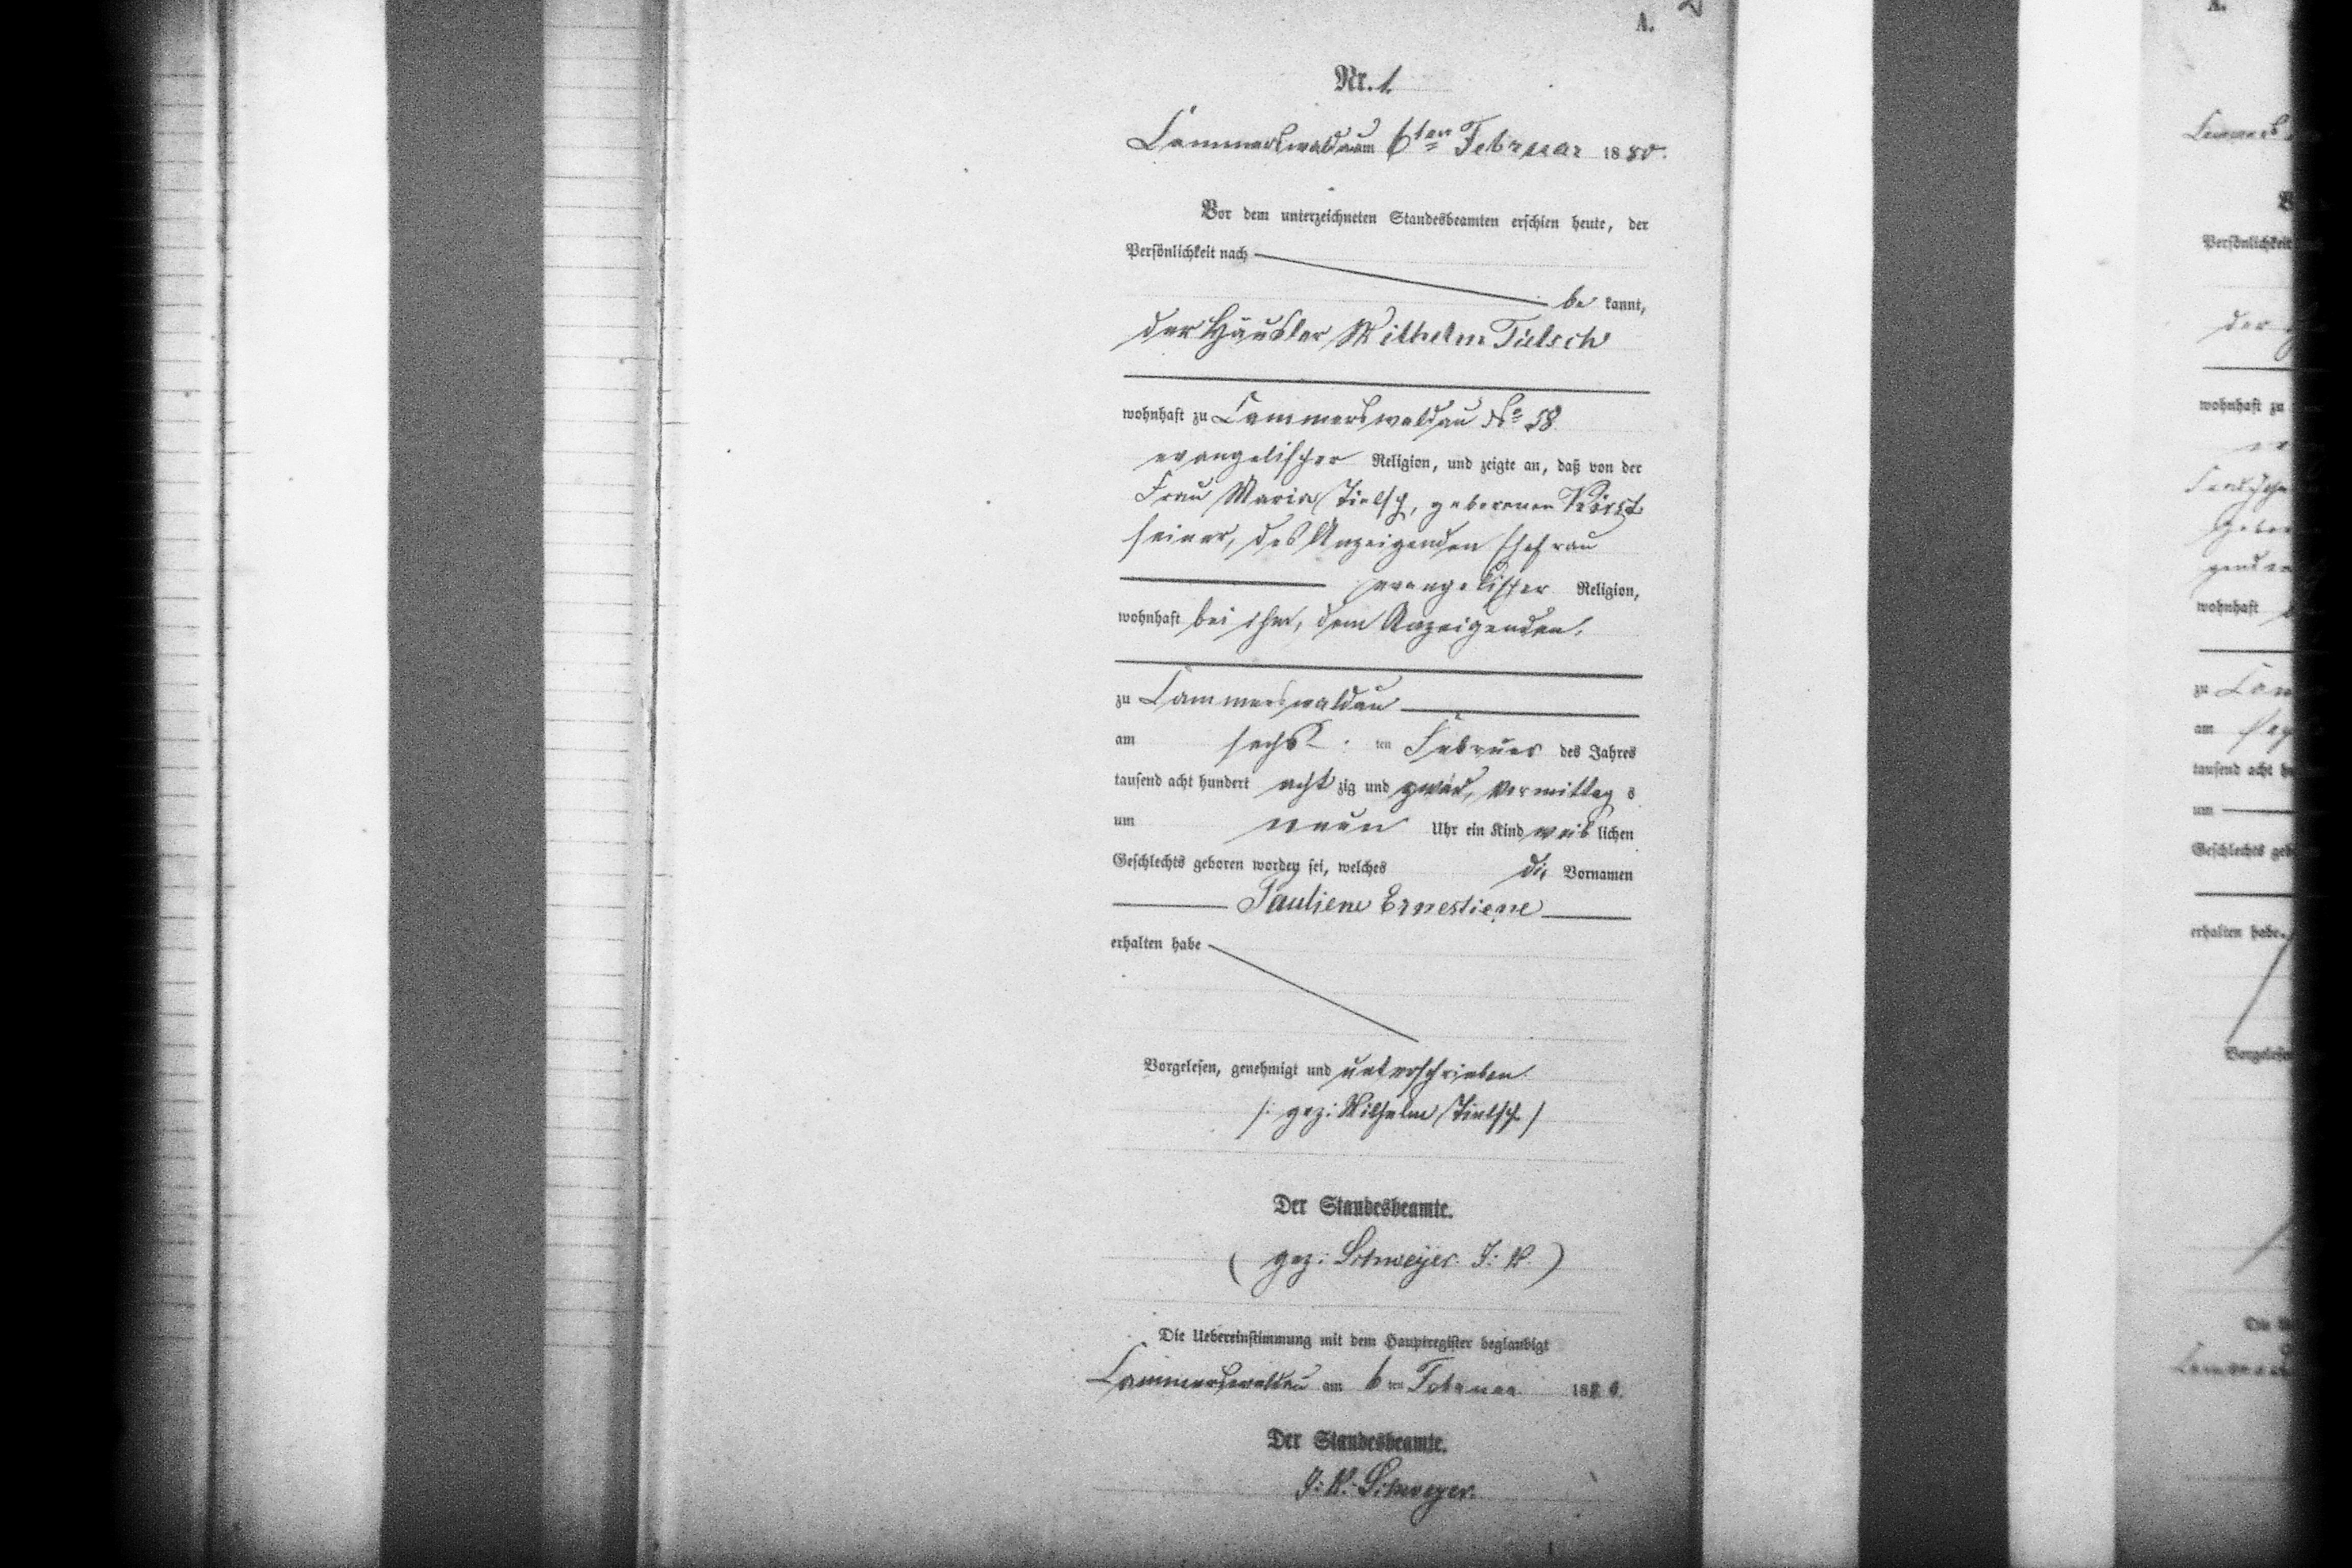 A.
2
Nr. 1.
Cammerswaldau am 6ten Februar 1880.
Vor dem unterzeichneten Standesbeamten erschien heute, der
Persönlichkeit nach
be kannt,
der Häusler Wilhelm Tielsch
wohnhaft zu Cammerswaldau No 58
evangelischer Religion, und zeigte an, daß von der
Frau Maria Tielsch, geborenen
seiner, des Anzeigenden Ehefrau
evangelischer Religion,
wohnhaft bei ihm, dem Anzeigenden,
zu Cammerswaldau
am sechs ten Februar des Jahres
tausend acht hundert acht zig und zwar, Vormittag s
um neun Uhr ein Kind weib lichen
Geschlechts geboren worden sei, welches die Vornamen
Pauliene Ernestiene
erhalten habe
Vorgelesen, genehmigt und unterschrieben
/: gez: Wilhelm Tielsch /
Der Standesbeamte.
( gez: J: V. )
Die Uebereinstimmung mit dem Hauptregister beglaubigt
Cammerswaldau am 6 ten Februar 1880.
Der Standesbeamte.
J: V.
A.
Persönlichkeit
der
wohnhaft zu
wohnhaft
zu
am
tausend acht
um
Geschlechts
erhalten habe